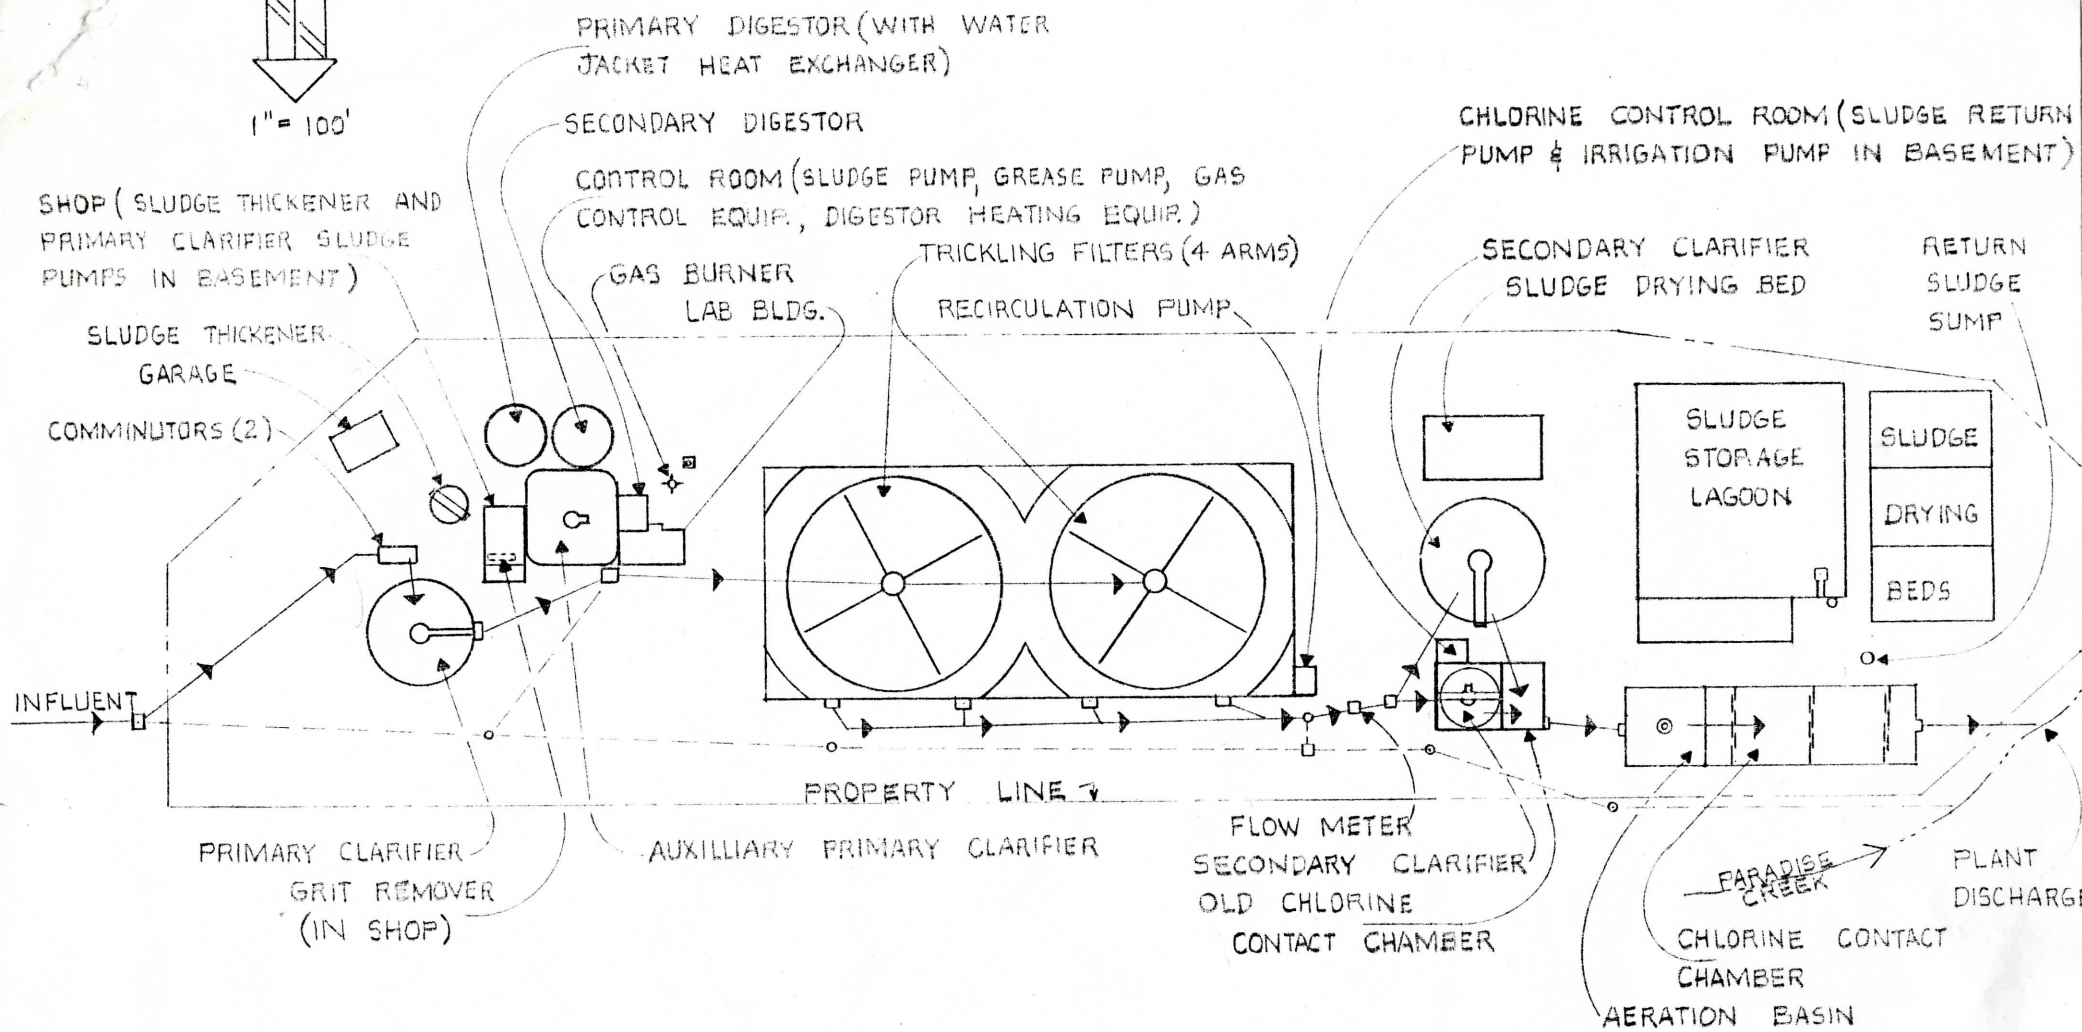 1" = 100'
PRIMARY DIGESTOR (WITH WATER
JACKET HEAT EXCHANGER)
SECONDARY DIGESTOR
CONTROL ROOM (SLUDGE PUMP, GREASE PUMP, GAS
CONTROL EQUIP., DIGESTOR HEATING EQUIP.)
SHOP (SLUDGE THICKENER AND
PRIMARY CLARIFIER SLUDGE
PUMPS IN BASEMENT)
SLUDGE THICKENER
GARAGE
COMMINUTORS (2)
GAS BURNER
LAB BLDG.
TRICKLING FILTERS (4 ARMS)
RECIRCULATION PUMP
CHLORINE CONTROL ROOM (SLUDGE RETURN
PUMP & IRRIGATION PUMP IN BASEMENT)
SECONDARY CLARIFIER
SLUDGE DRYING BED
RETURN
SLUDGE
SUMP
SLUDGE
STORAGE
LAGOON
SLUDGE
DRYING
BEDS
INFLUENT
PROPERTY LINE
PRIMARY CLARIFIER
GRIT REMOVER
(IN SHOP)
AUXILLIARY PRIMARY CLARIFIER
FLOW METER
SECONDARY CLARIFIER
OLD CHLORINE
CONTACT CHAMBER
PARADISE
CREEK
PLANT
DISCHARGE
CHLORINE CONTACT
CHAMBER
AERATION BASIN